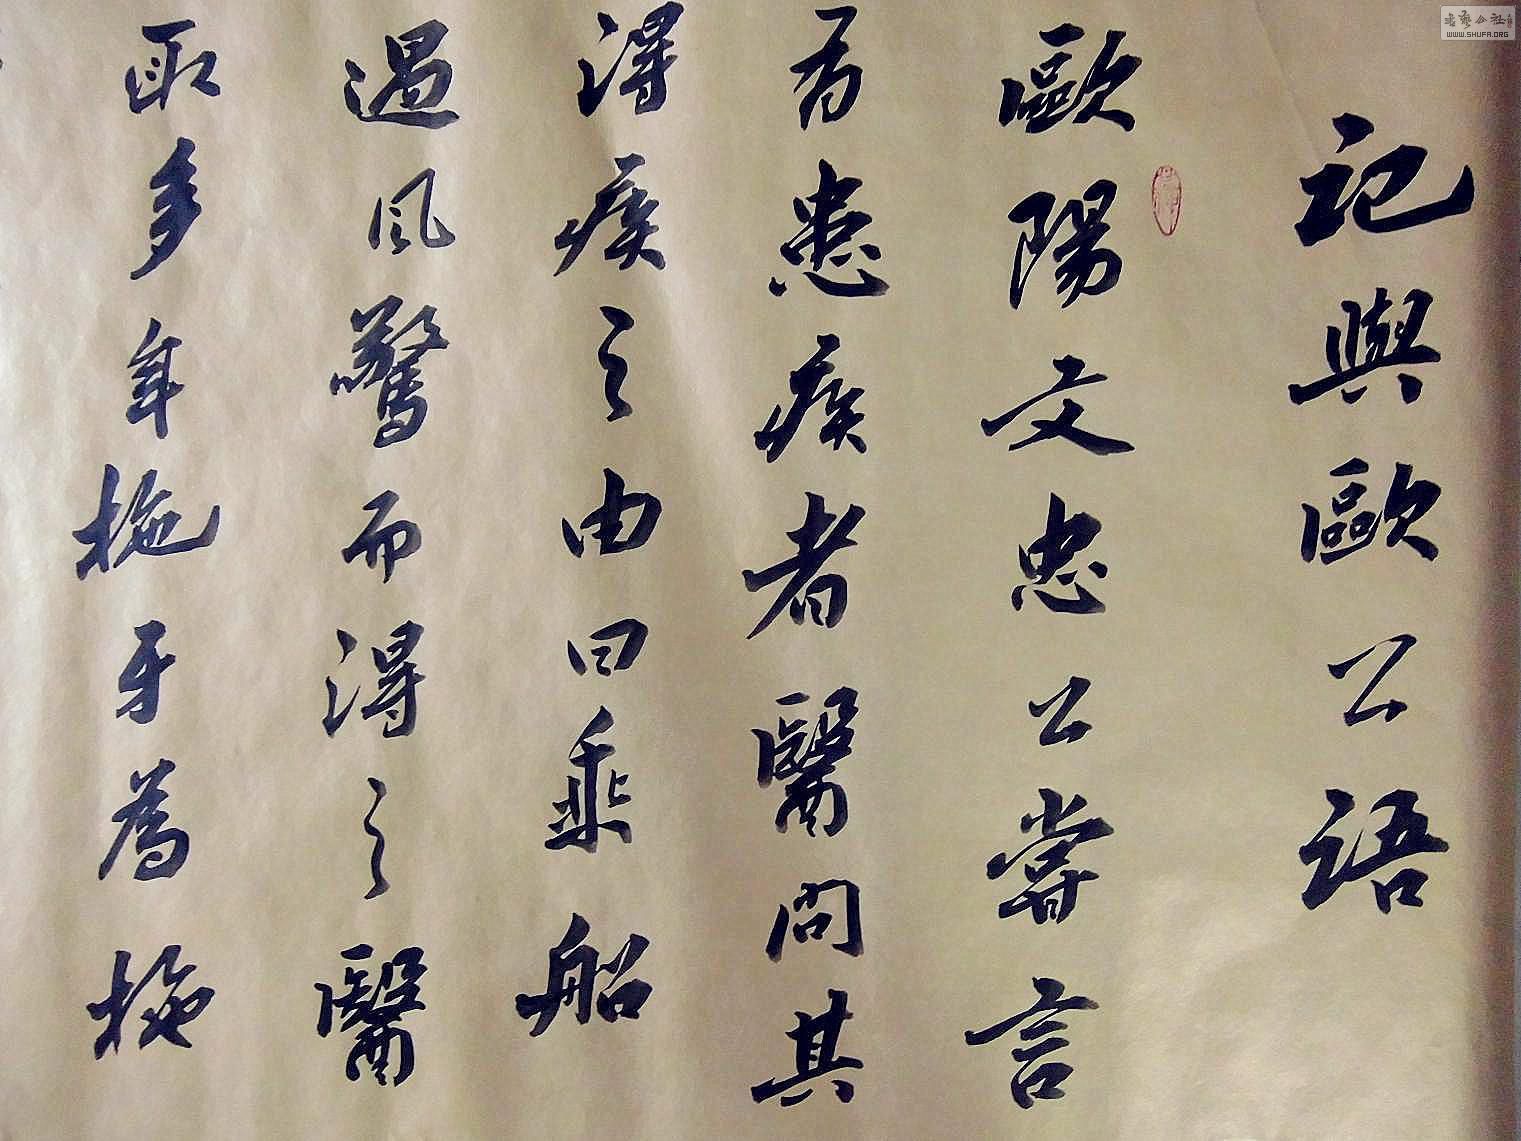 記與歐公語
歐陽文忠公嘗言
有患疾者醫問其
得疾之由曰乘船
遇風驚而得之醫
取多年柂牙為柂
WWW.SHUFA.ORG